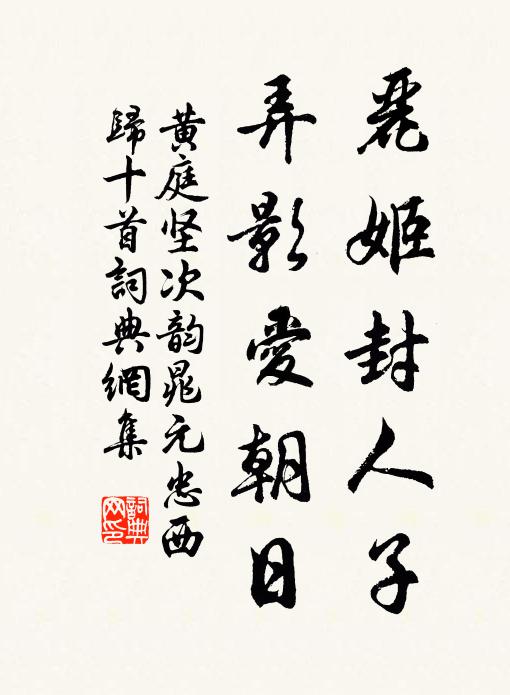 麗姬封人子
弄影愛朝日
黄庭坚次韵晁元忠西
歸十首詞典網集
詞典
网印